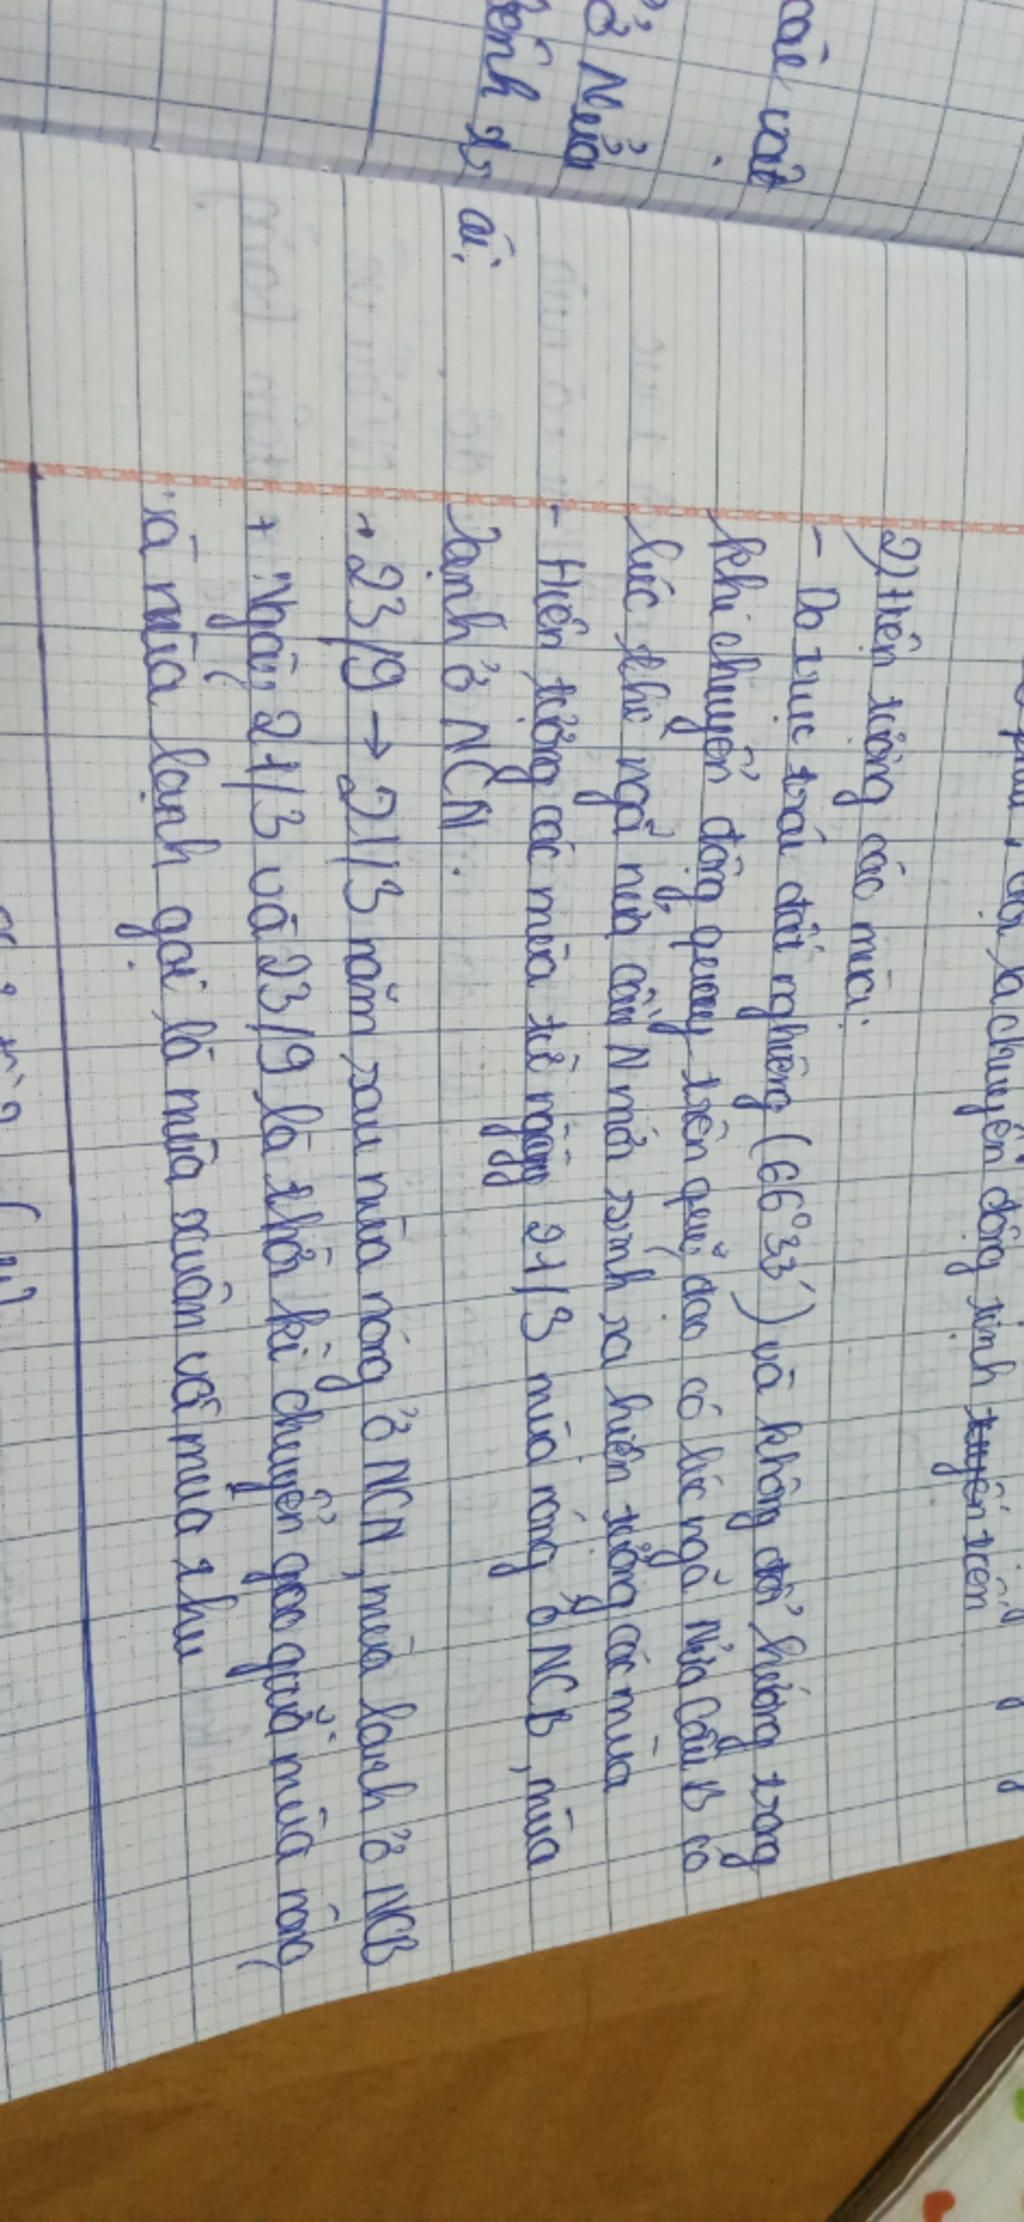 là chuyển động tịnh tuyến tiến
2) Hiện tượng các mùa:
- Do trục trái đất nghiêng (66°33') và không đổi hướng trong
khi chuyển động quay trên quỹ đạo có lúc ngã Nửa Cầu B có
lúc thì ngã nửa cầu N mới sinh ra hiện tượng các mùa
- Hiện tượng các mùa từ ngày 21/3 mùa nóng ở NCB, mùa
lạnh ở NCN.
+ 23/9 → 21/3 năm sau mùa nóng ở NCN, mùa lạnh ở NCB
+ Ngày 21/3 và 23/9 là thời kì chuyển giao giữa mùa nóng
và mùa lạnh gọi là mùa xuân và mùa thu
ở Nửa